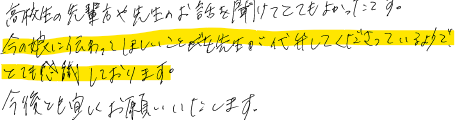 高校生の先輩方や先生のお話を聞けてとてもよかったです。
今の娘に伝わってほしいことが先生がご代弁してくださっているようで、
とても感謝しております。
今後とも宜しくお願いいたします。